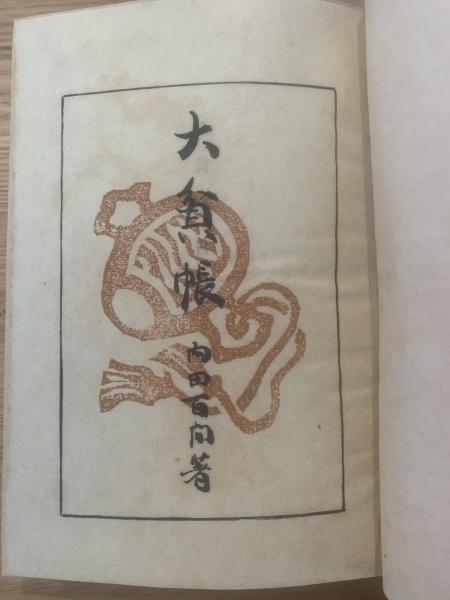 大貧帳
内田百間著